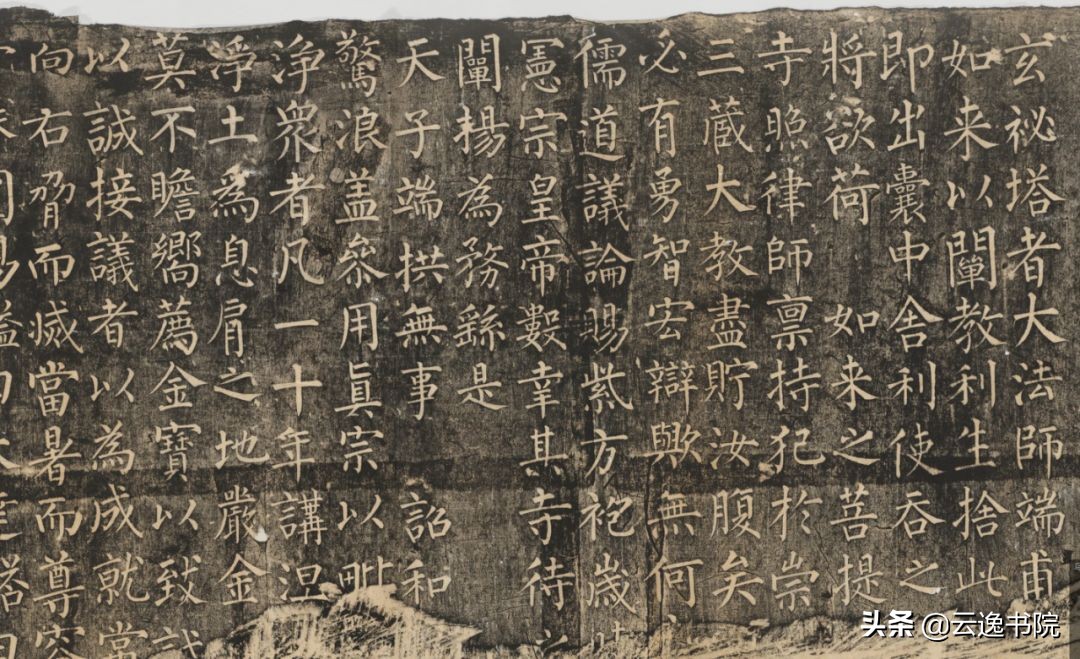 玄祕塔者大法師端甫
如来以闡教利生捨此
即出囊中舍利使吞之
將欲荷 如来之菩提
寺照律師禀持犯於崇
三藏大教盡貯汝腹矣
必有勇智宏辯歟無何
儒道議論賜紫方袍歲
憲宗皇帝數幸其寺待
闡揚為務繇是
天子端拱無事 詔和
驚浪盖參用真宗以毗
浄衆者凡一十年講涅
浄土為息肩之地嚴金
莫不瞻嚮薦金寶以致誠
以誠接議者以為成就常
向右脅而滅當暑而尊容
头条 @云逸书院